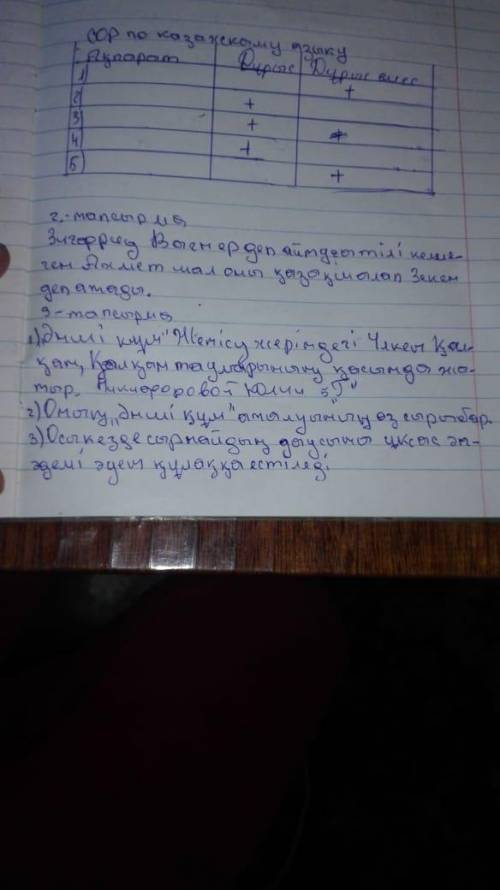 СОР по казахскому языку
Ақпарат Дұрыс Дұрыс емес
1) +
2) +
3) +
4) + +
5) +
2-тапсырма
Зигфрид Вагнер деп айтуға тілі келме-
ген Ахмет шал оны қазақшалап Зекен
деп атады.
3-тапсырма
1) Әнші құм" Жетісу жеріндегі Үлкен Қал-
қан, Қалқан тауларының қасында жа-
тыр. Никифоровой Юлии 5 "Г"
2) Оның "әнші құм" аталуының өз сыры бар.
3) Осы кезде сырнайдың даусына ұқсас әп-
әдемі әуен құлаққа естіледі.